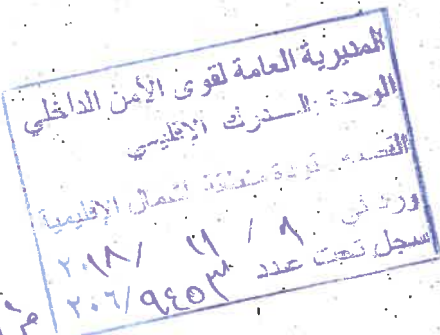 المديرية العامة لقوى الأمن الداخلي
الوحدة : الدرك الإقليمي
القسم : قيادة منطقة الشمال الإقليمية
ورد في ٩ / ١١ / ٢٠١٨
سجل تحت عدد ٢٠٦/٩٤٥٣